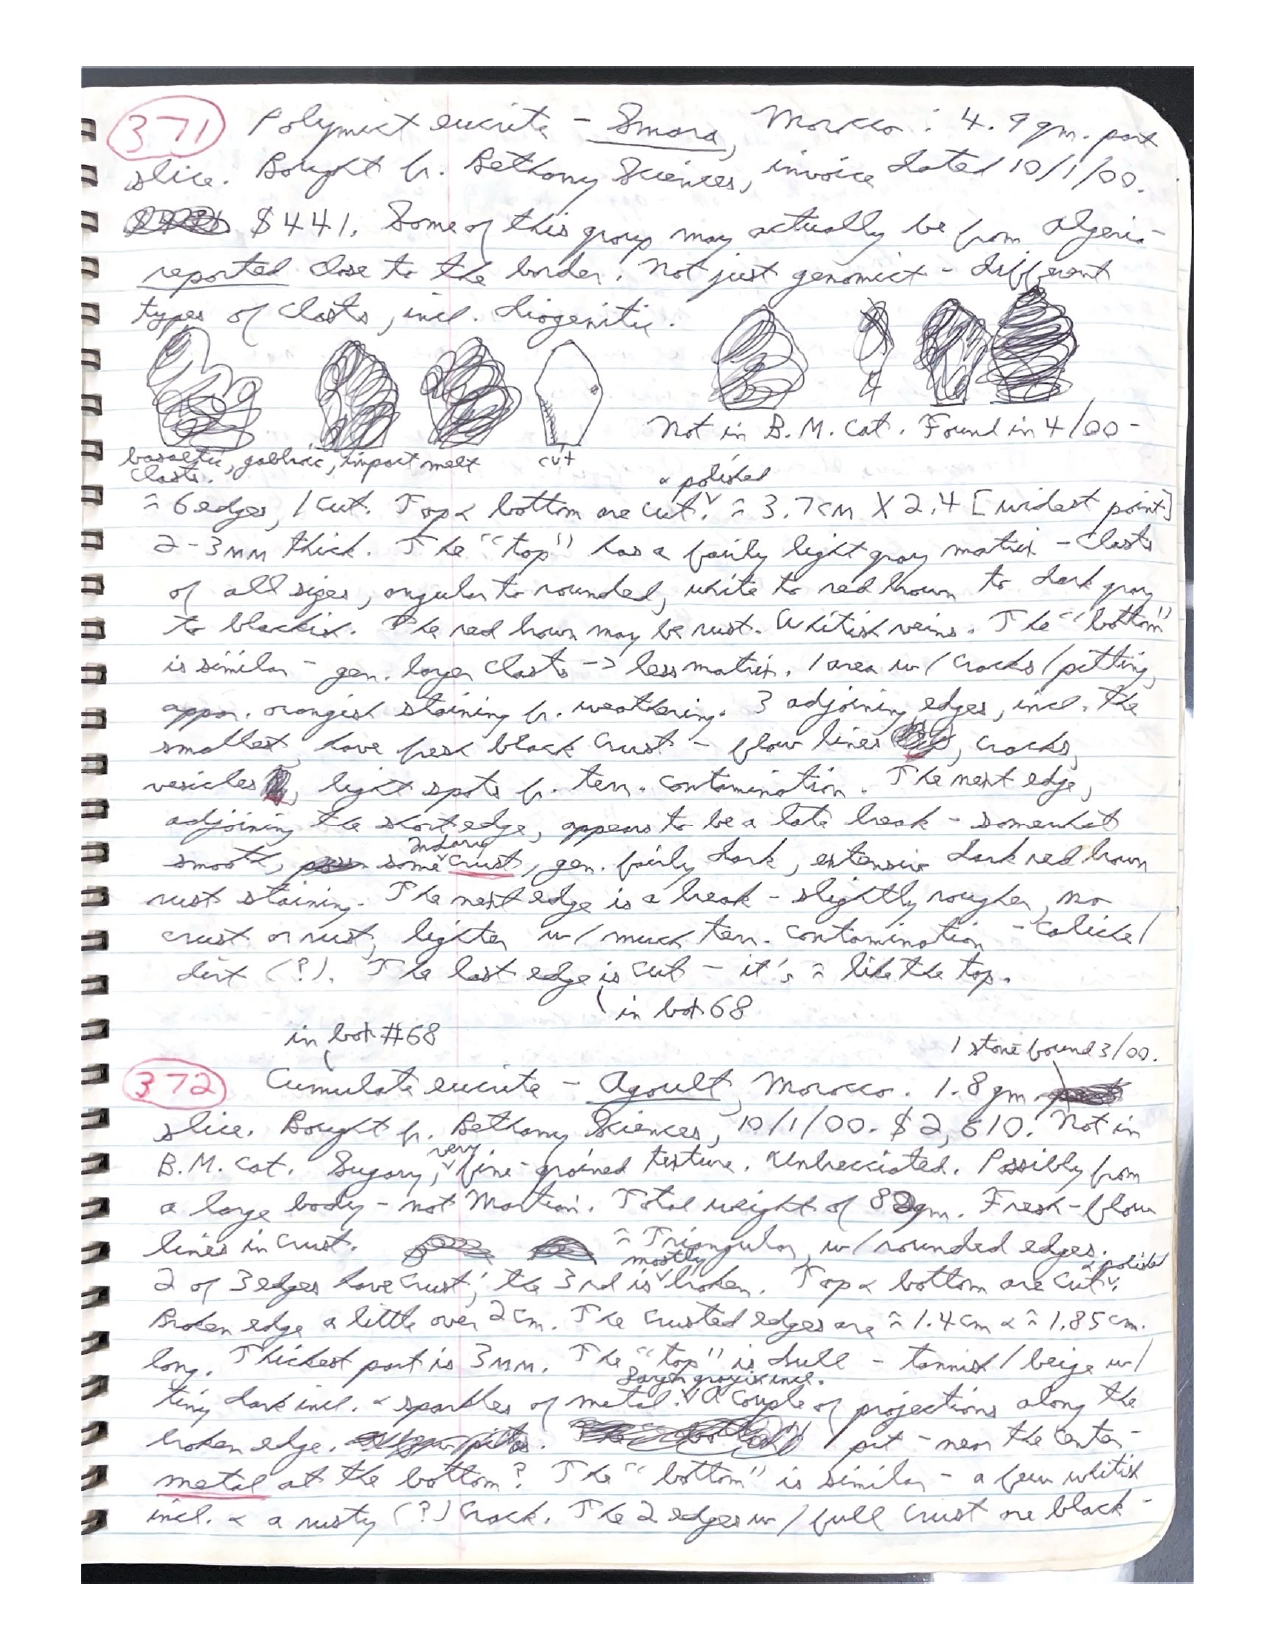 371 Polymict eucrite - Smara, Morocco: 4.9 gm. part
slice. Bought fr. Bethany Sciences, invoice dated 10/1/00.
$441. Some of this group may actually be from Algeria -
reported close to the border. Not just genomict - different
types of clasts, incl. diogenitic.
Not in B.M. Cat. Found in 4/00 -
basaltic, gabbroic, impact melt
clasts.
cut
≈ 6 edges, 1 cut. Top & bottom are cut & polished. ≈ 3.7 cm X 2.4 [widest point]
2-3 mm thick. The "top" has a fairly light gray matrix - clasts
of all sizes, angular to rounded, white to red brown to dark gray
to blackish. The red brown may be rust. Whitish veins. The "bottom"
is similar - gen. larger clasts -> less matrix. 1 area w/ cracks/pitting,
appar. orangish staining fr. weathering. 3 adjoining edges, incl. the
smallest, have fresh black crust - flow lines, cracks,
vesicles, light spots fr. terr. contamination. The next edge,
adjoining the short edge, appears to be a late break - somewhat
smooth, some 2ndary crust, gen. fairly dark, extensive dark red brown
rust staining. The next edge is a break - slightly rougher, no
crust or rust, lighter w/ much terr. contamination - caliche/
dirt (?). The last edge is cut - it's ≈ like the top.
in bot 68
in bot #68
1 stone found 3/00.
372 Cumulate eucrite - Agoult, Morocco. 1.8 gm.
slice. Bought fr. Bethany Sciences, 10/1/00. $2,610. Not in
B.M. Cat. Sugary, very fine-grained texture. Unbrecciated. Possibly from
a large body - not Martian. Total weight of 82 gm. Fresh - flow
lines in crust. ≈ Triangular, w/ rounded edges.
2 of 3 edges have crust; the 3rd is mostly broken. Top & bottom are cut & polished.
Broken edge a little over 2 cm. The crusted edges are ≈ 1.4 cm & ≈ 1.85 cm.
long. Thickest part is 3 mm. The "top" is dull - tannish/beige w/
tiny dark incl. & sparkles of metal. Larger grayish incl. A couple of projections along the
broken edge. 1 pit - near the center -
metal at the bottom? The "bottom" is similar - a few whitish
incl. & a rusty (?) crack. The 2 edges w/ full crust are black -